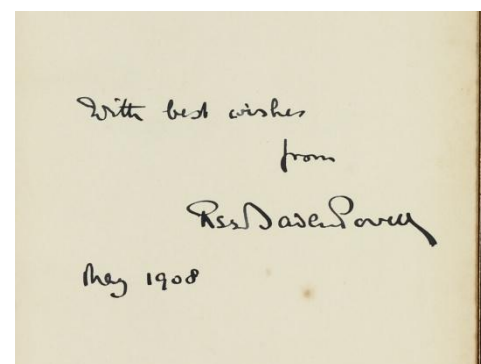 With best wishes
from
RSS Baden Powell
May 1908